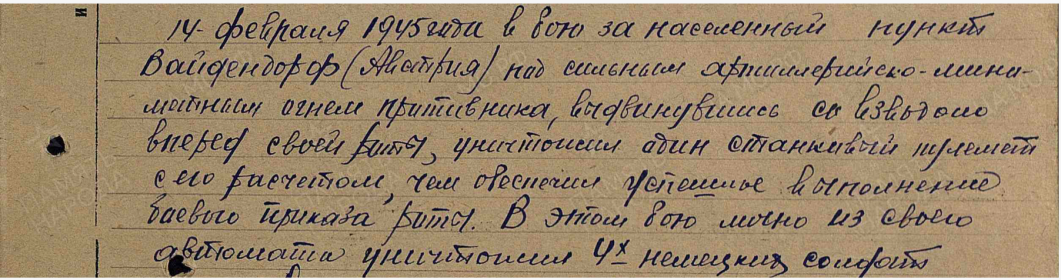 14 февраля 1945 года в бою за населенный пункт
Вайдендорф (Австрия) под сильным артиллерийско-мино-
метным огнем противника, выдвинувшись со взводом
вперед своей роты, уничтожил один станковый пулемет
с его расчетом, чем обеспечил успешное выполнение
боевого приказа роты. В этом бою лично из своего
автомата уничтожил 4х немецких солдат